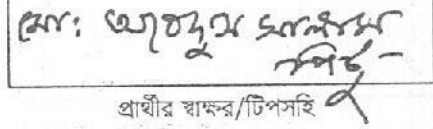 মো: আবদুস সালাম
পিন্টু
প্রার্থীর স্বাক্ষর/টিপসহি